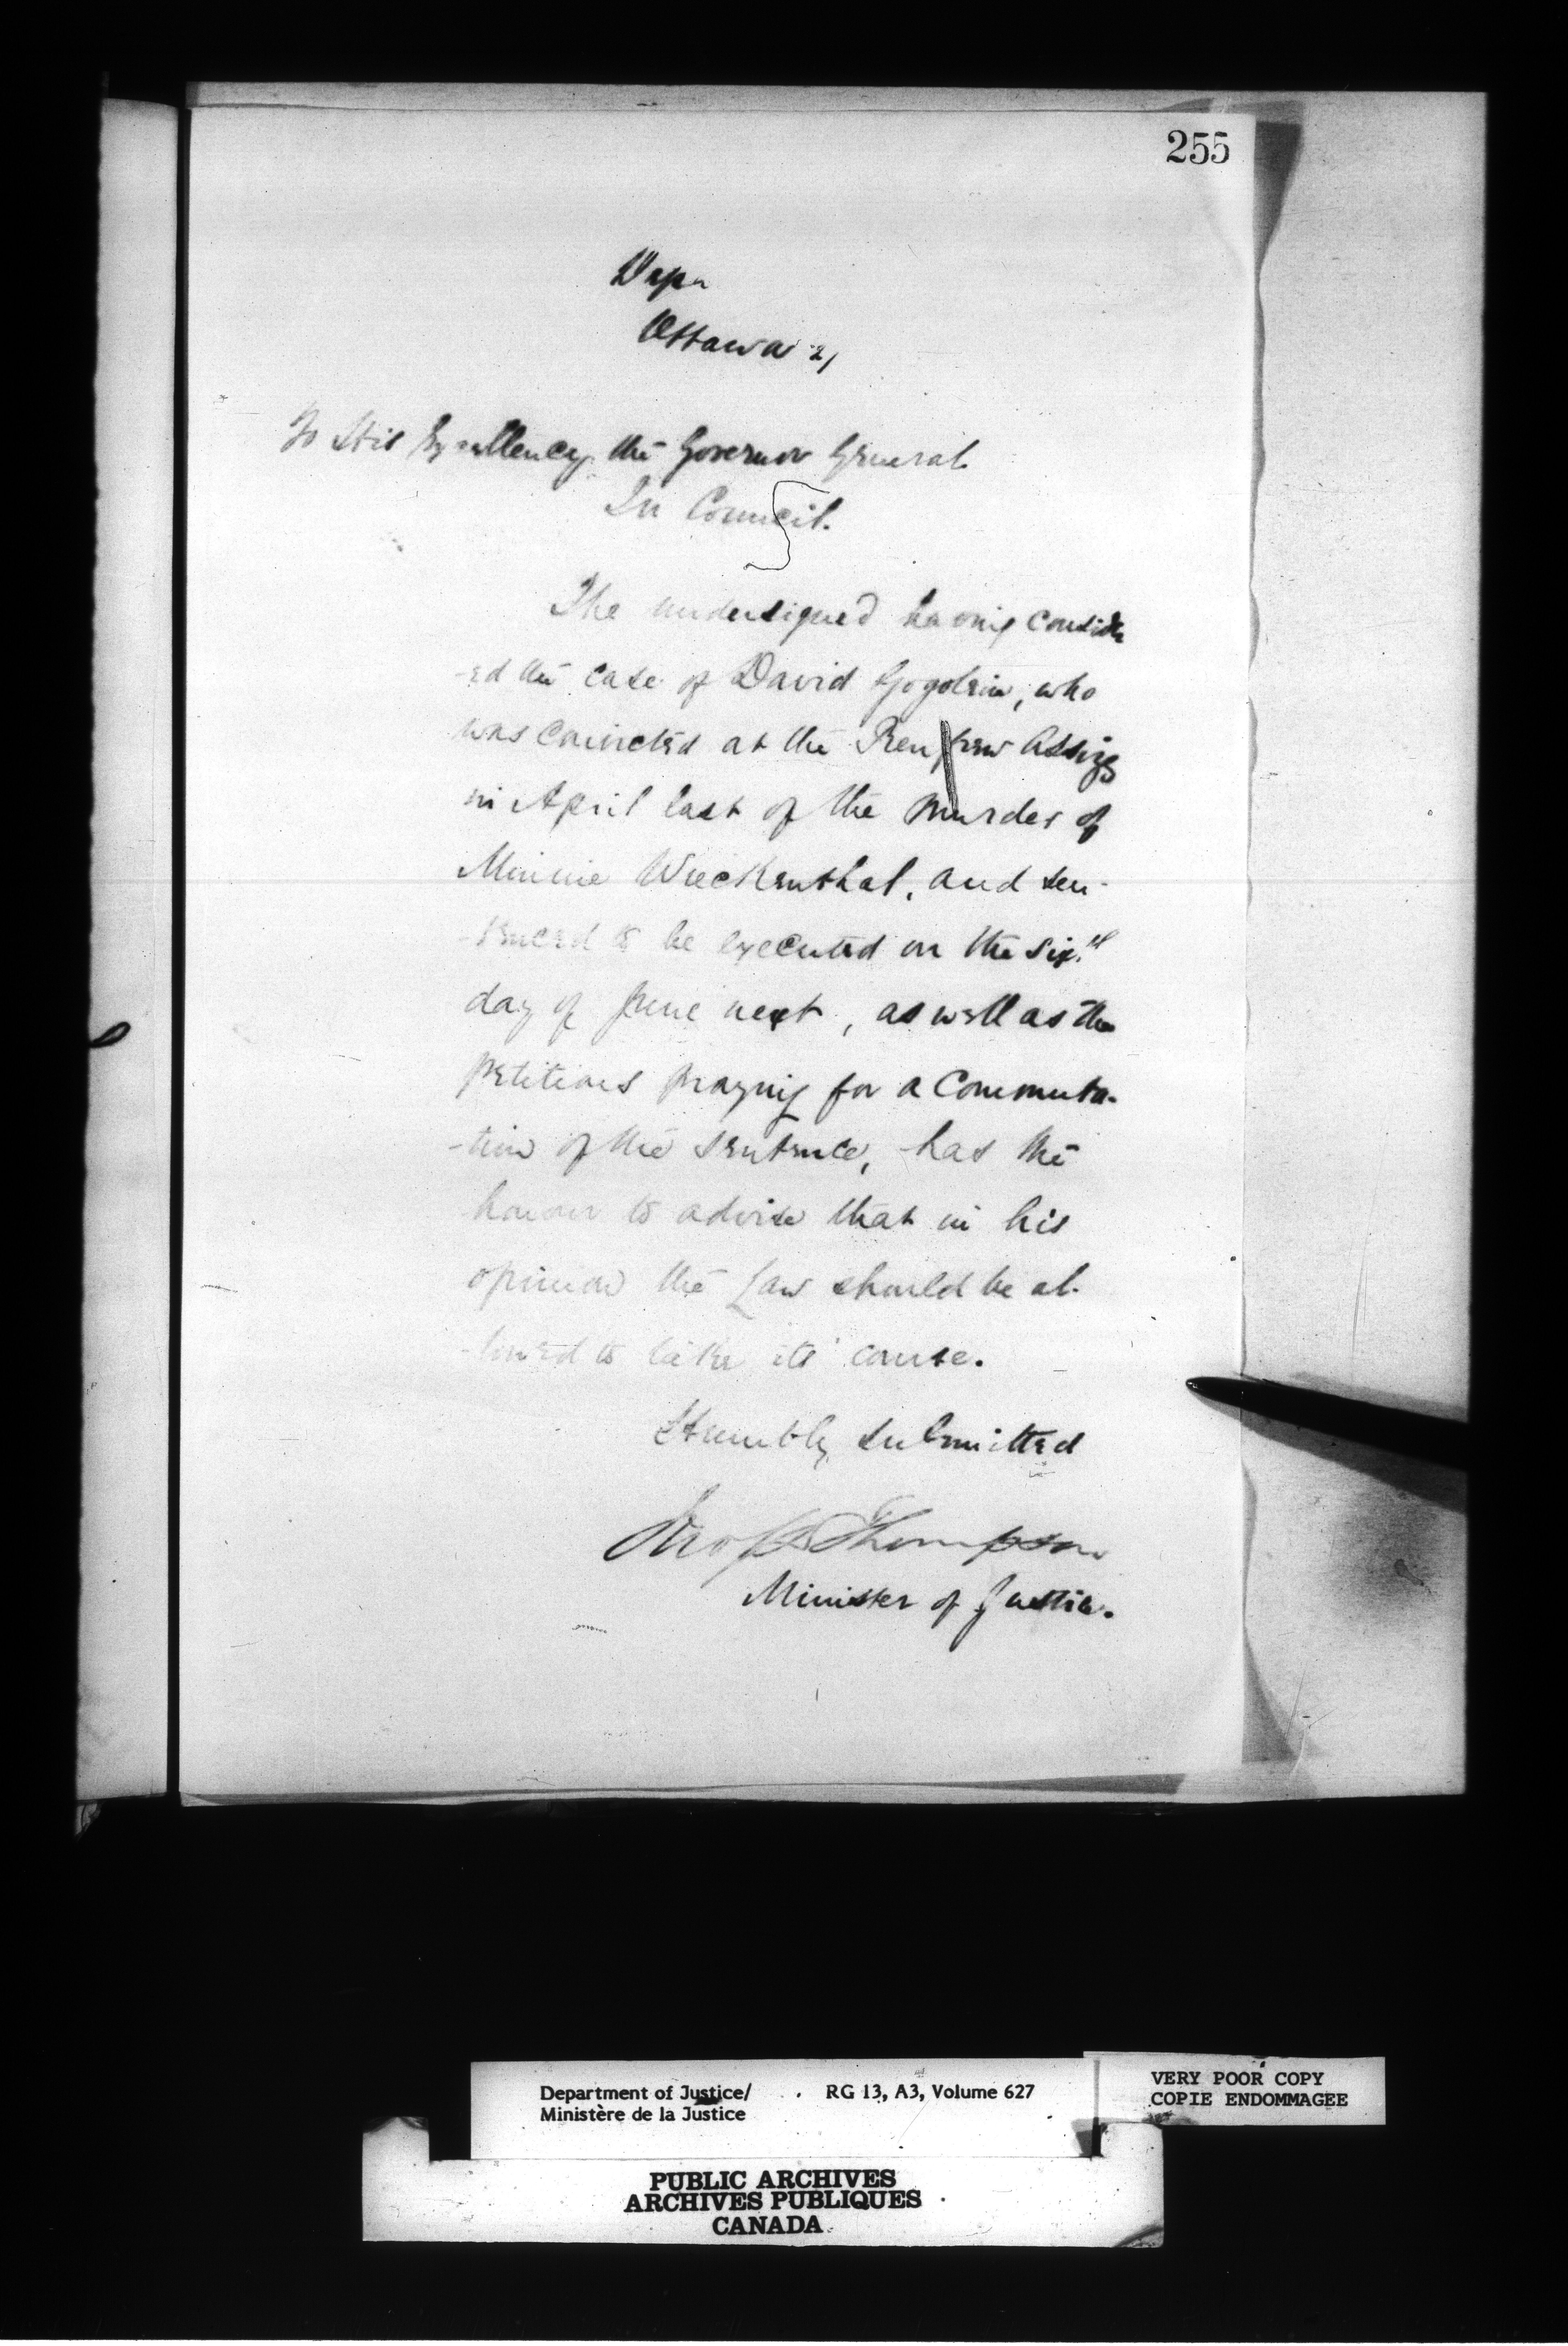 255
Depa
Ottawa 21
To His Excellency the Governor General
In Council.
The undersigned having consider
-ed the case of David Gogolein, who
was convicted at the Renfrew Assizes
in April last of the murder of
Minnie Wieckenthal, and sen-
-tenced to be executed on the six.th
day of June next, as well as the
petitions praying for a commuta-
-tion of the sentence, has the
honour to advise that in his
opinion the Law should be al-
-lowed to take its course.
Humbly submitted
Jno S D Thompson
Minister of Justice.
Department of Justice/ RG 13, A3, Volume 627
Ministère de la Justice
VERY POOR COPY
COPIE ENDOMMAGEE
PUBLIC ARCHIVES
ARCHIVES PUBLIQUES
CANADA